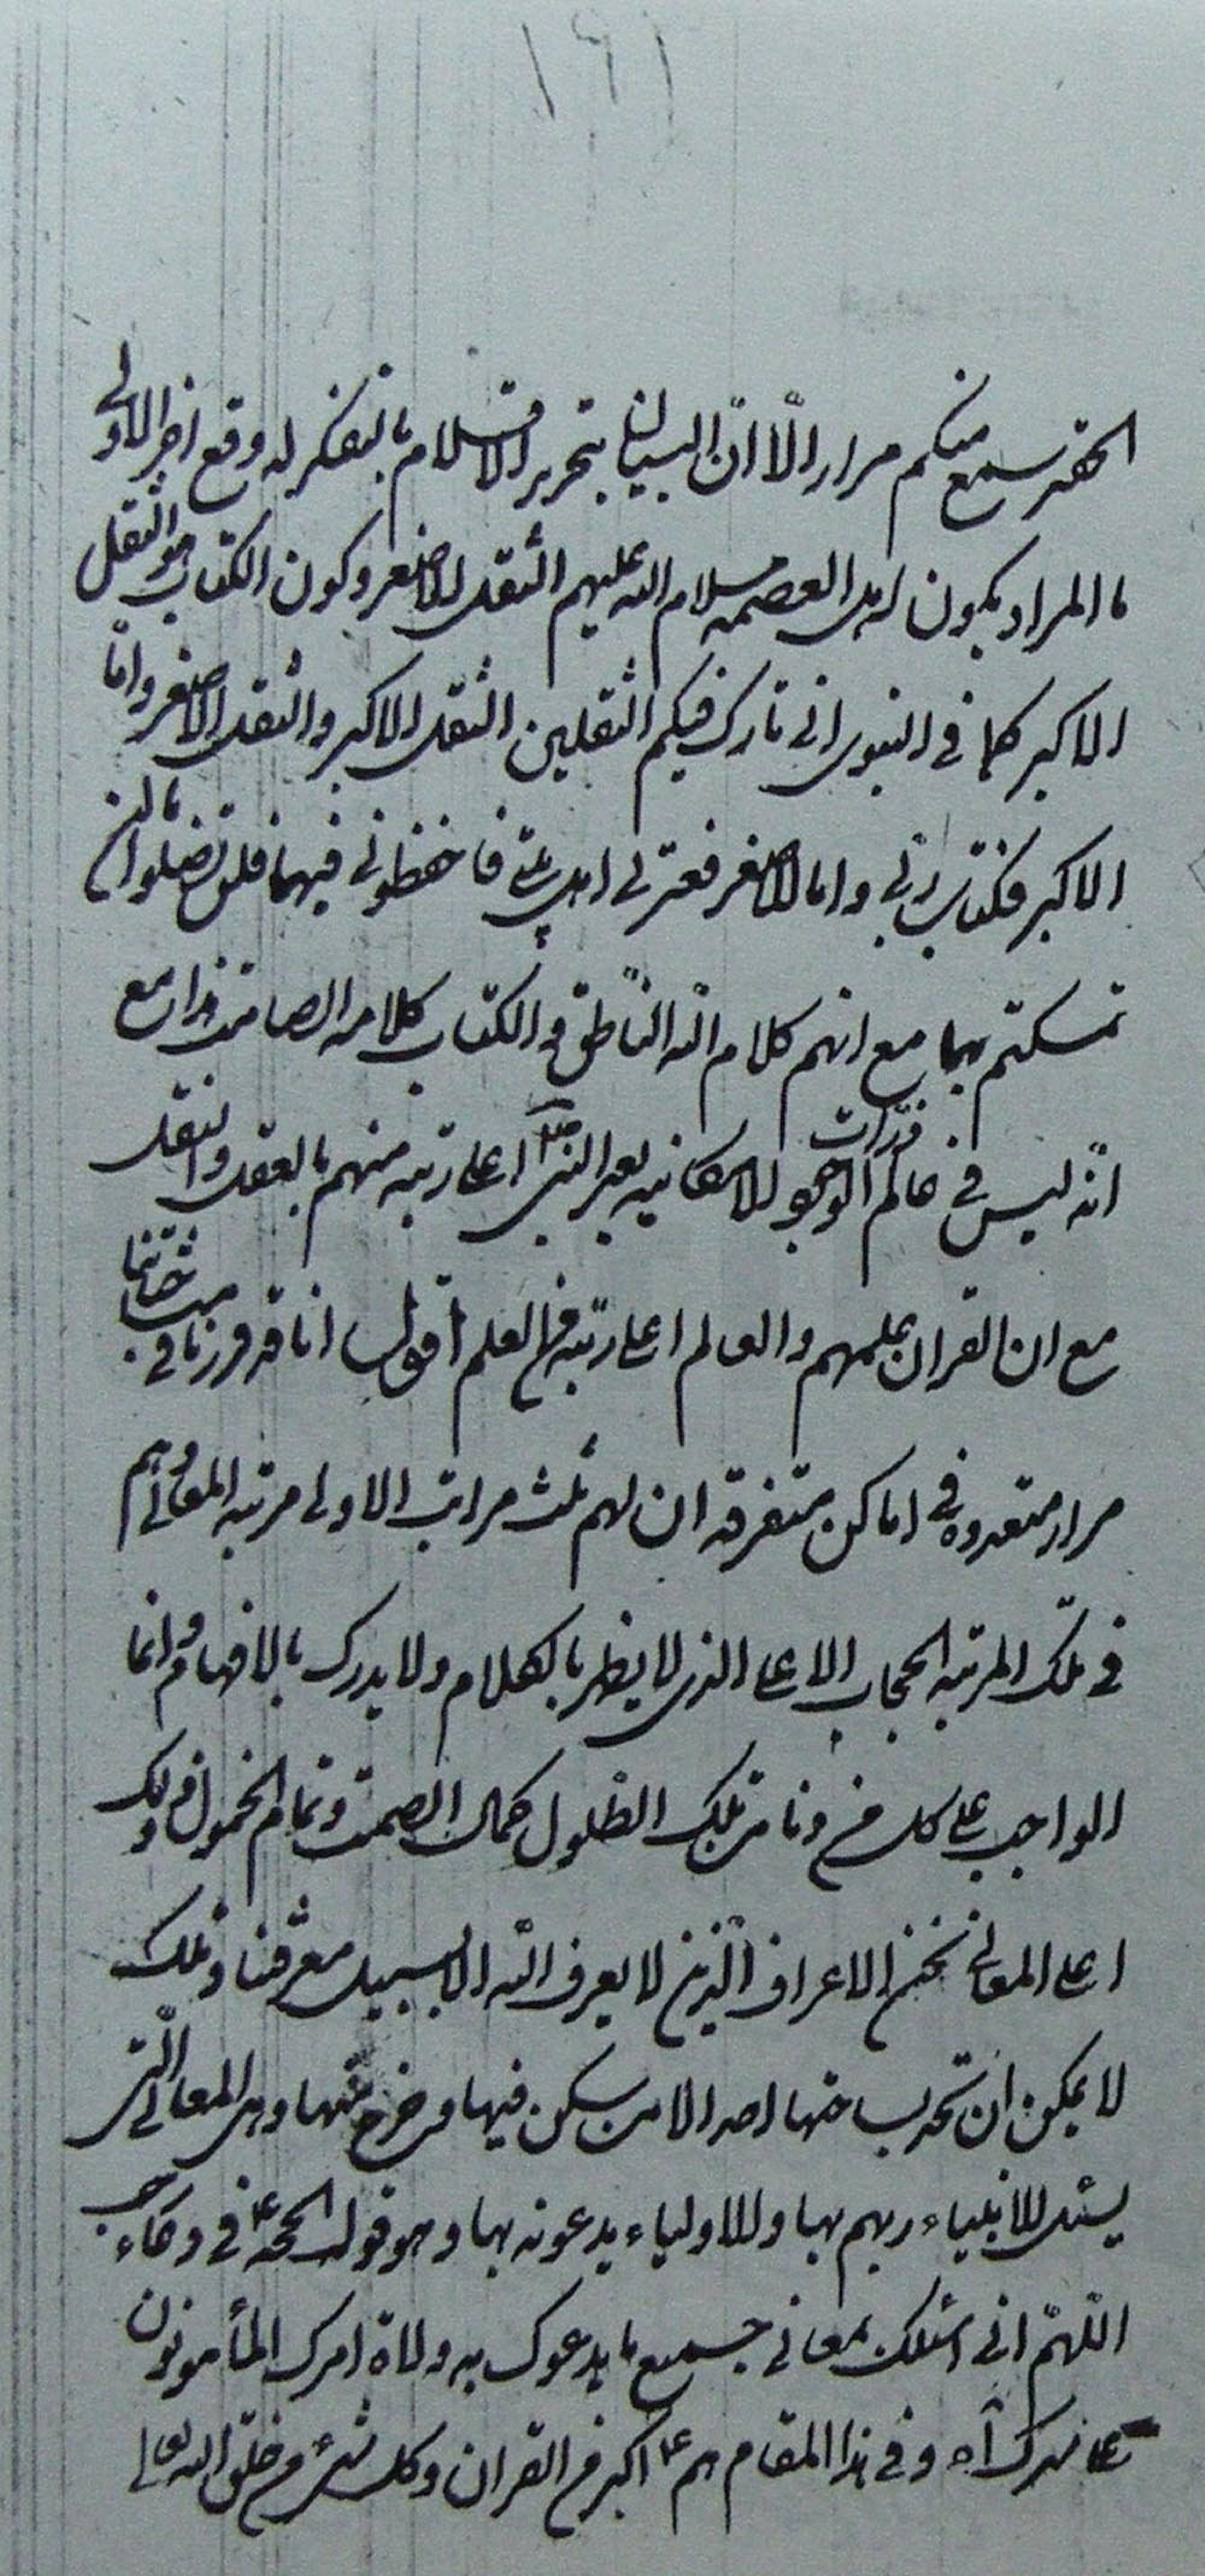 ١٦١
الحقير سمع منكم مرارا الّا انّ البيان بتحرير الاقلام ما لتفكر له وقع اخر الاولى
ما المراد بكون اهل العصمه سلام الله عليهم الثقل الاصغر وكون الكتاب هو الثقل
الاكبر كما فى النبوى انى تارك فيكم الثقلين الثقل الاكبر والثقل الاصغر وامّا
الاكبر فكتاب ربى واما الاصغر فعترتى اهل بيتى فاحفظونى فيهما فلن تضلوا ما ان
تمسكتم بهما مع انهم كلام الله الناطق و الكتاب كلامه الصامت وهذا مع
انّه ليس فى عالم الوجود ذرّات الامكانيه بعد النبى ص اعلى رتبه منهم بالعقل والنقل
مع ان القران علمهم والعالم اعلى رتبة من العلم اقول انا قد قررنا فى مباحثاتنا
مرارا متعدده فى اماكن متفرقه ان لهم ثلث مراتب الاولى مرتبه المعانى وهم
فى تلك المرتبه الحجاب الاعلى الذى لا يظهر بالكلام ولا يدرك بالافهام وانما
الواجب على كل من دنا من تلك الطلول كمال الصمت وتمام الخمول فى ذلك
اعلى المعانى نحن الاعراف الّذين لا يعرف الله الا بسبيل معرفتنا وتلك
لا يمكن ان تحد بساحتها احد الا من سكن فيها وخرج عنها وهى المعانى الّتى
يسئل الانبياء ربهم بها والاولياء يدعونه بها وهو قول الحجه ع فى دعاء رجب
اللّهمّ انى اسئلك بمعانى جميع ما يدعوك به ولاة امرك المأمونون
على سرك آه و فى هذا المقام هم ع اكبر من القران وكل شئ من خلق الله تعالى